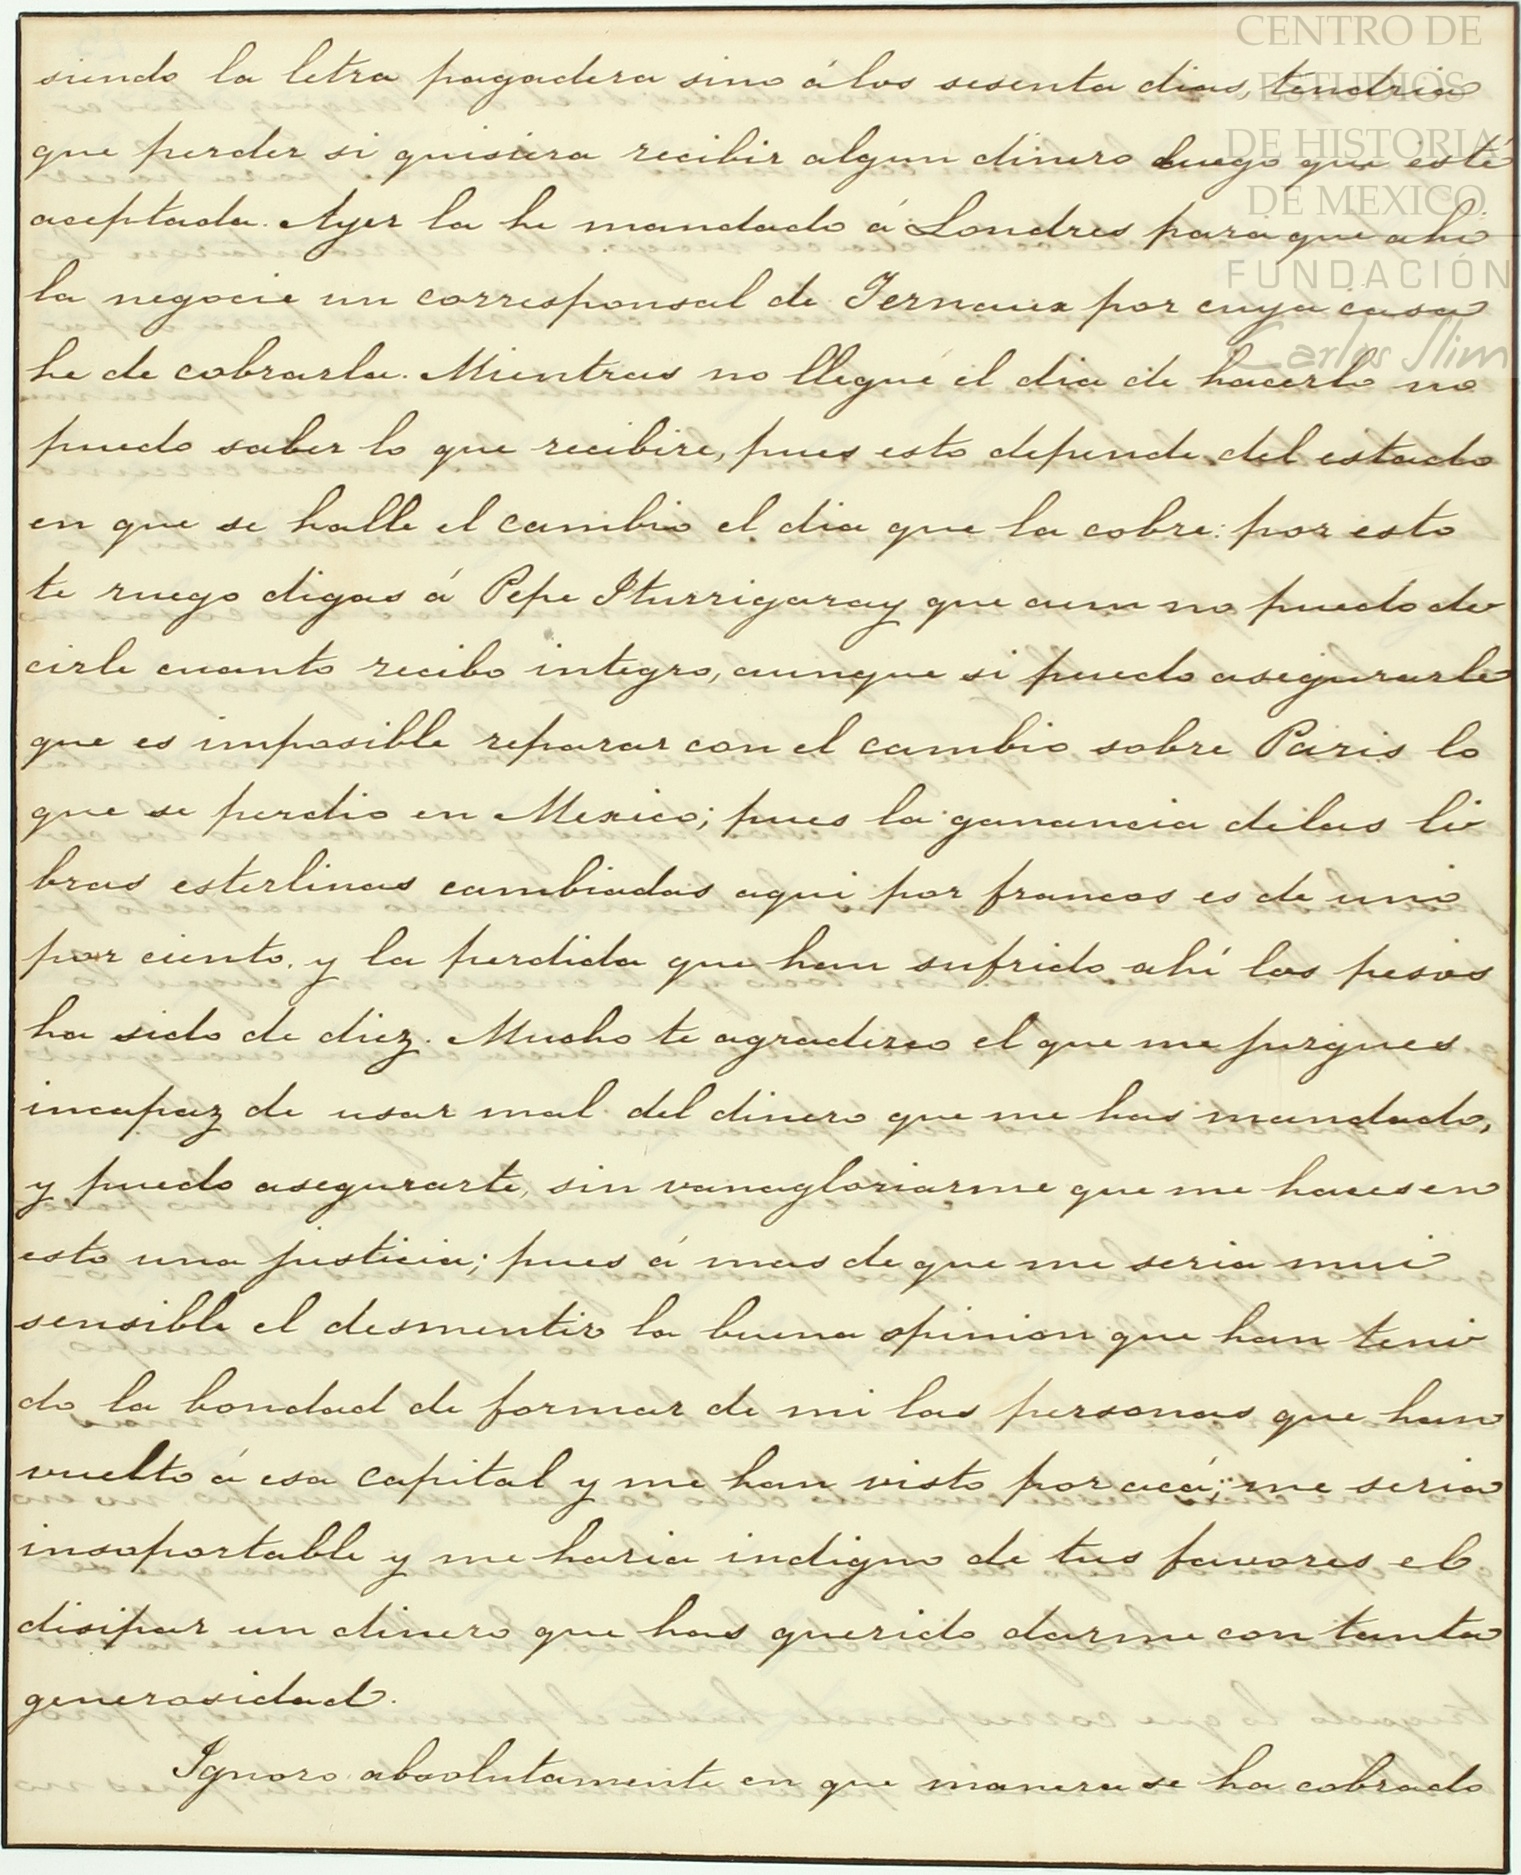 siendo la letra pagadera sino á los sesenta dias, tendria
que perder si quisiera recibir algun dinero luego que esté
aceptada. Ayer la he mandado á Londres para que ahi
la negocie un corresponsal de Ternaux por cuya casa
he de cobrarla. Mientras no llegue el dia de hacerlo no
puedo saber lo que recibire, pues esto depende del estado
en que se halle el cambio el dia que la cobre: por esto
te ruego digas á Pepe Iturrigaray que aun no puedo de
cirle cuanto recibo integro, aunque si puedo asegurarle
que es imposible reparar con el cambio sobre Paris lo
que se perdio en Mexico; pues la ganancia de las li
bras esterlinas cambiadas aqui por francos es de uno
por ciento, y la perdida que han sufrido ahí los pesos
ha sido de diez. Mucho te agradezco el que me jusgues
incapaz de usar mal del dinero que me has mandado,
y puedo asegurarte, sin vanagloriarme que me haces en
esto una justicia; pues á mas de que me seria mui
sensible el desmentir la buena opinion que han teni
do la bondad de formar de mi las personas que han
vuelto á esa capital y me han visto por acá; me seria
insoportable y me haria indigno de tus favores el
disipar un dinero que has querido darme con tanta
generosidad.
Ignoro absolutamente en que manera se ha cobrado
CENTRO DE
ESTUDIOS
DE HISTORIA
DE MEXICO
FUNDACIÓN
Carlos Slim